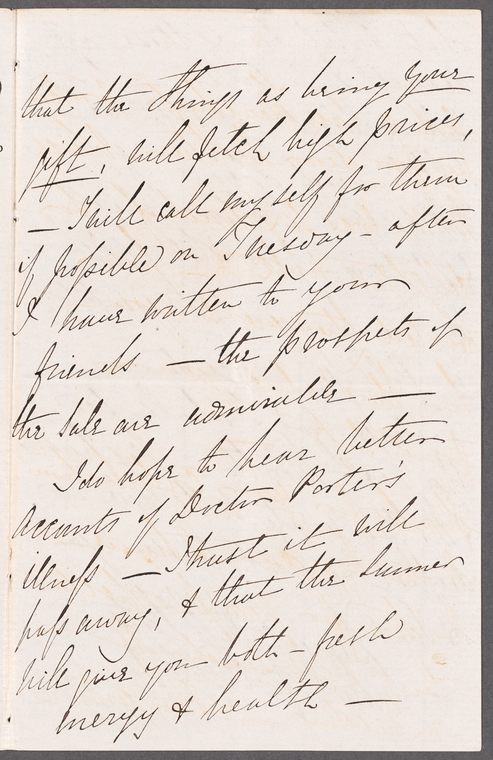 that the things as being your
gift, will fetch high prices,
— I will call myself for them
if possible on Tuesday – after
I have written to your
friends — the prospects of
the Sale are admirable —
I do hope to hear better
accounts of Doctor Porter's
illness — I trust it will
pass away, & that the Summer
will give you both – fresh
energy & health —